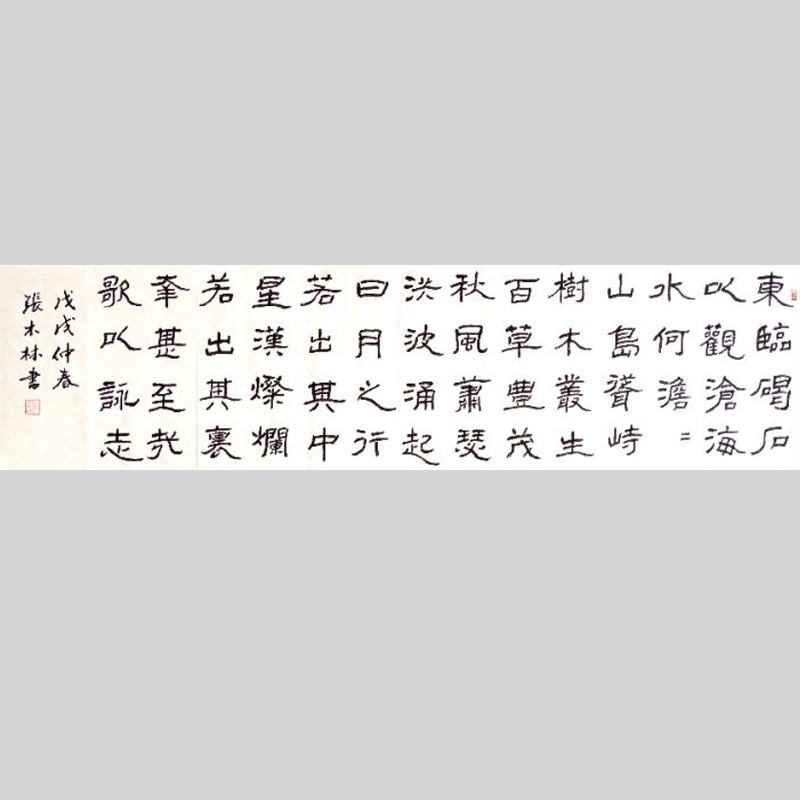 東臨碣石
以觀滄海
水何澹〻
山島聳峙
樹木叢生
百草豊茂
秋風蕭瑟
洪波涌起
日月之行
若出其中
星漢燦爛
若出其裏
幸甚至哉
歌以詠志
戊戌仲春
張木林書